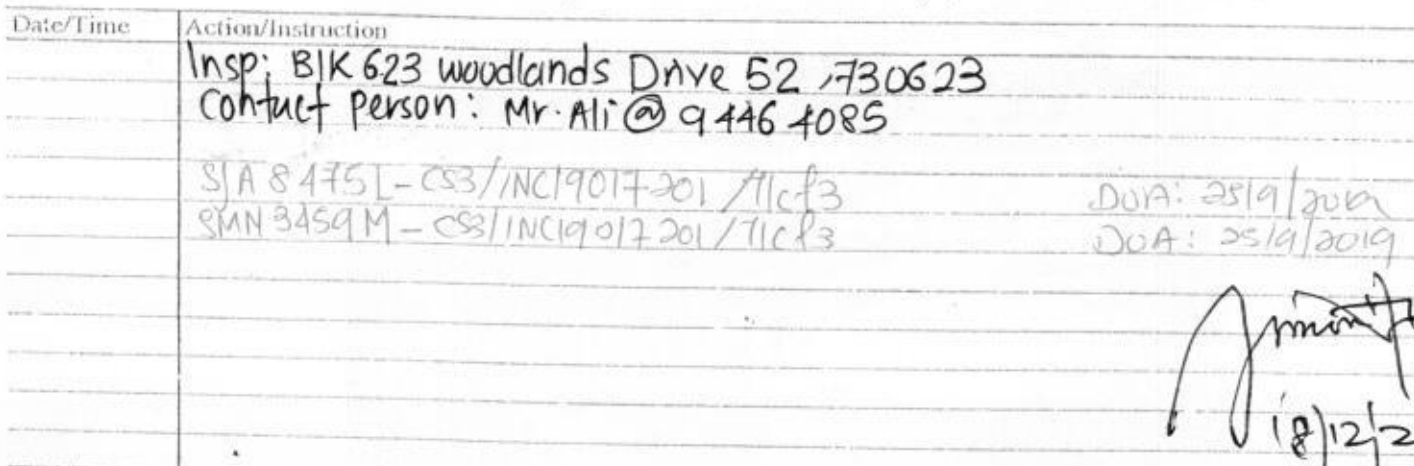 Date/Time Action/Instruction
Insp: Blk 623 woodlands Drive 52, 730623
Contact person: Mr. Ali @ 9446 4085
SJA 8475L - CS3/INC19017201 DOA: 25/9/2019
SMN 3459M - CS3/INC19017201 DOA: 25/9/2019
18/12/2